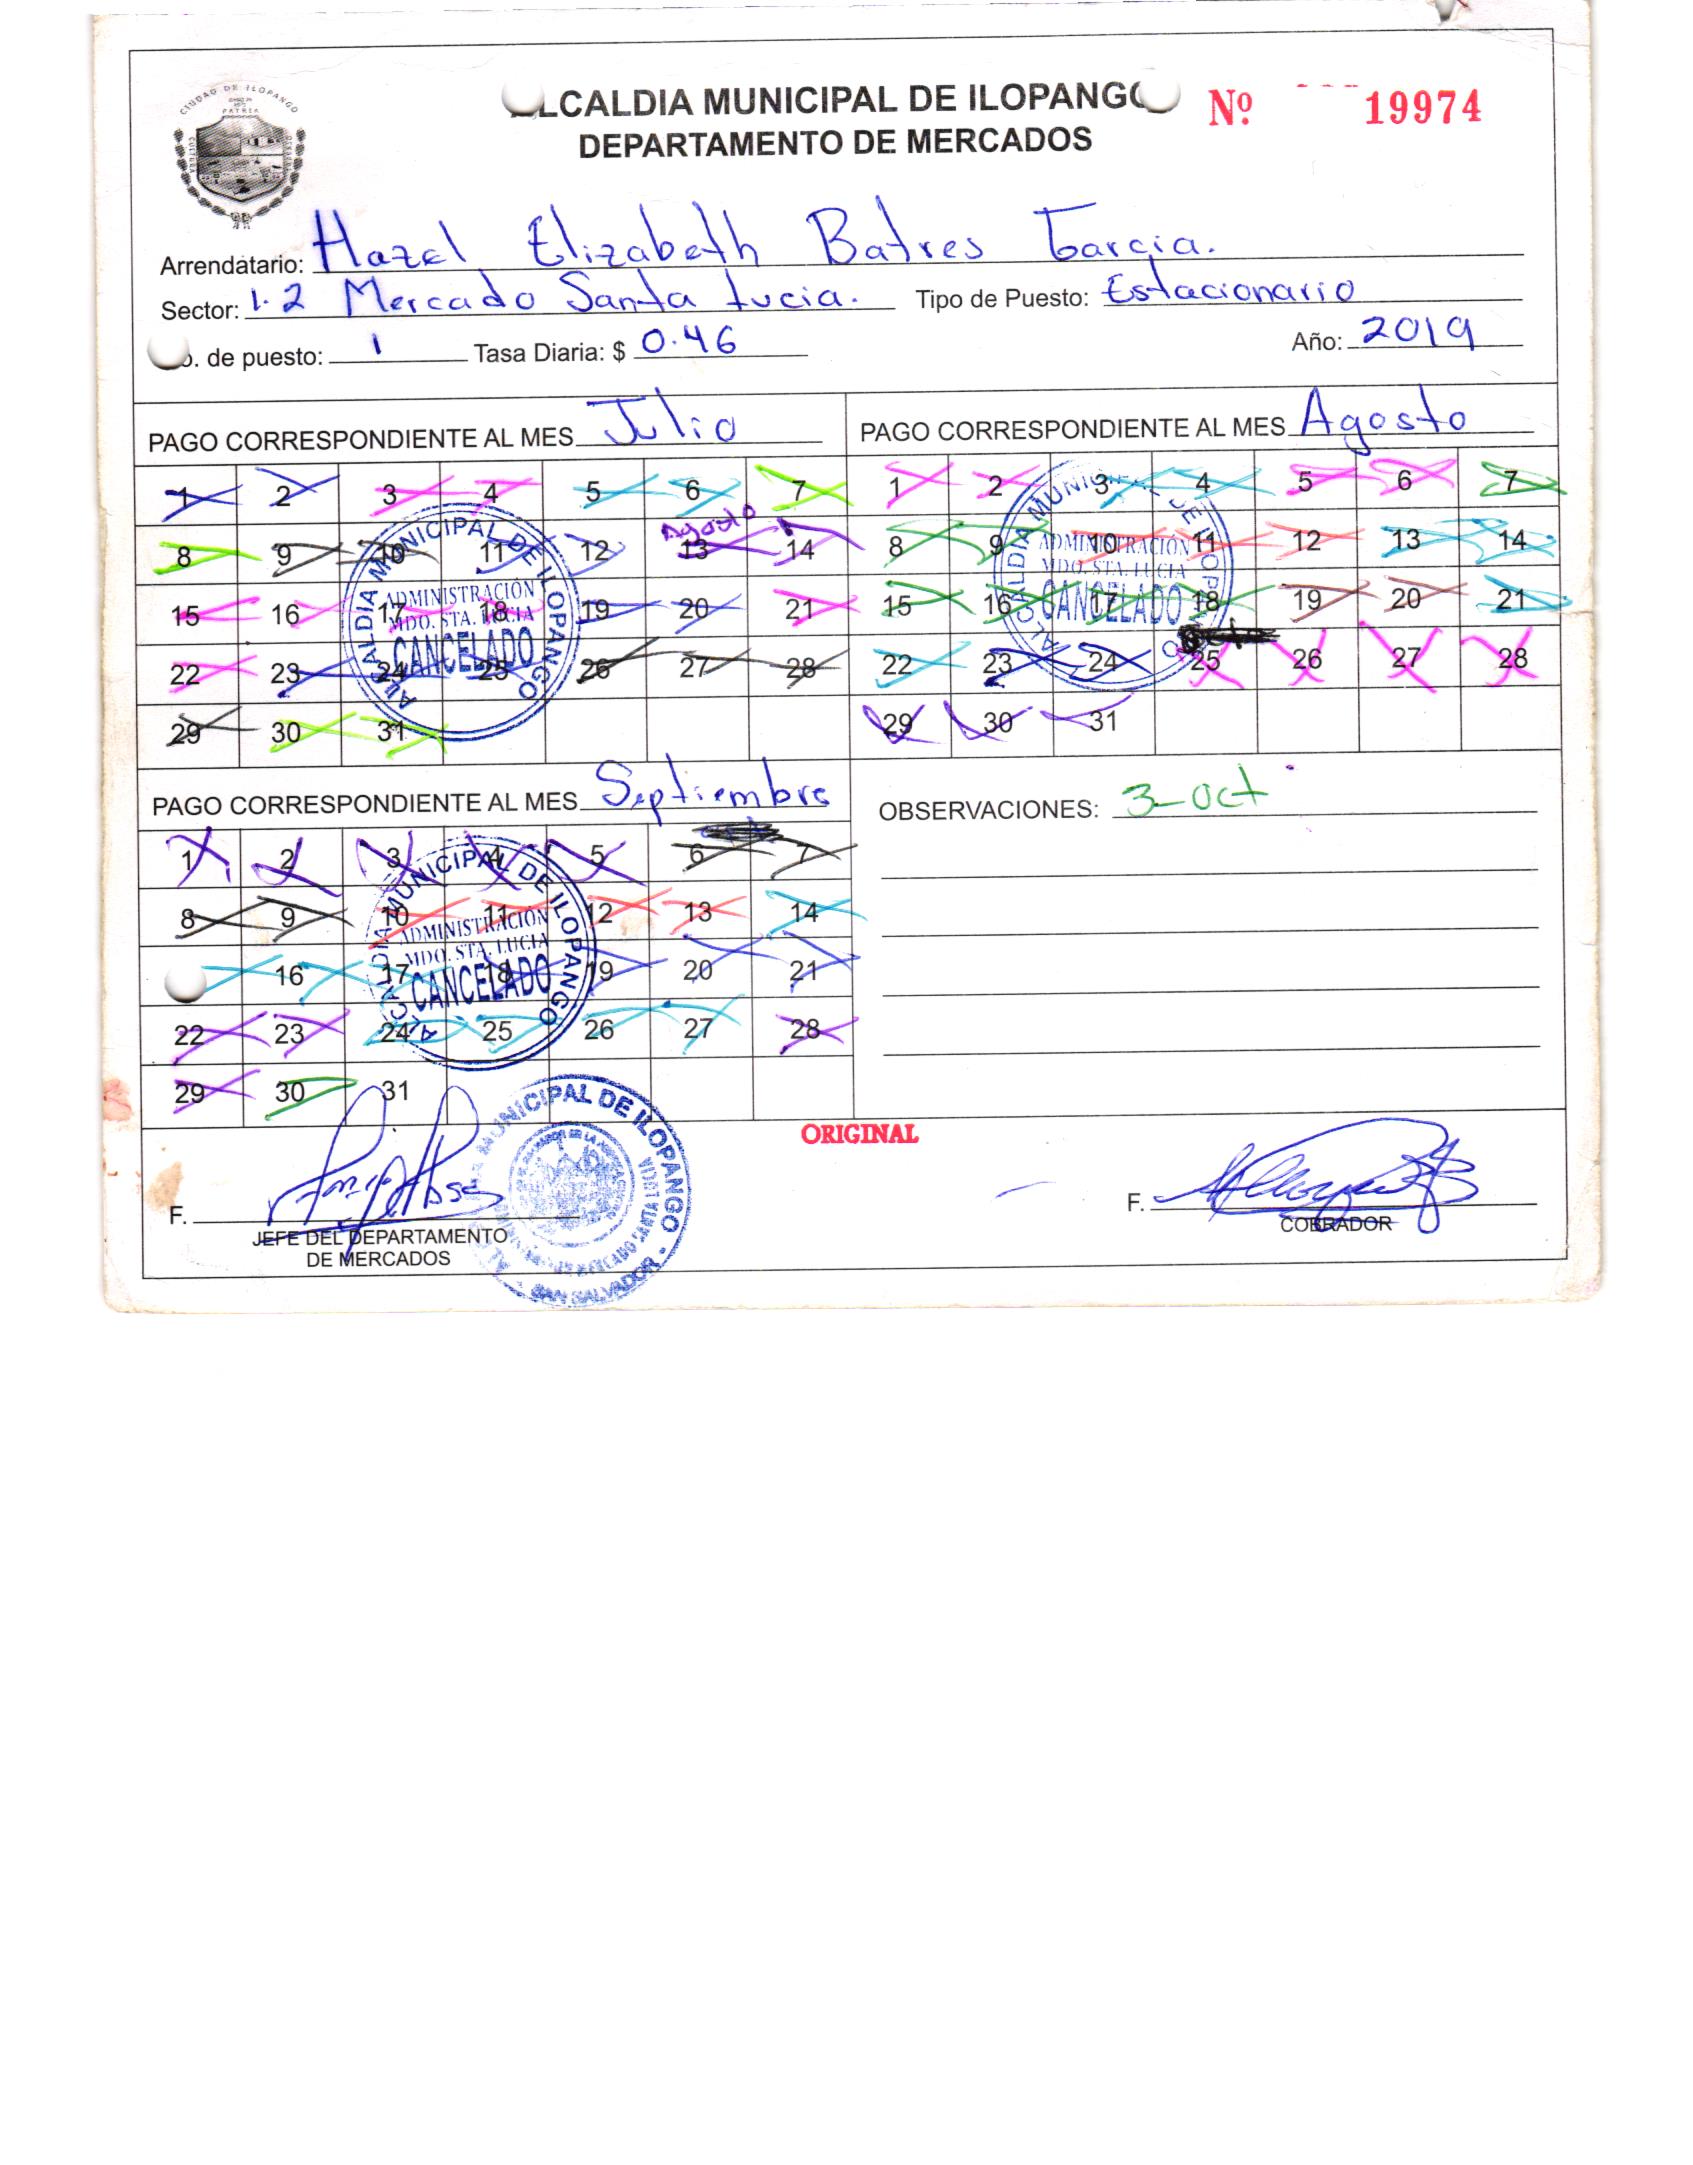 CIUDAD DE ILOPANGO
PATRIA
CULTURA
ALCALDIA MUNICIPAL DE ILOPANGO
Nº 19974
DEPARTAMENTO DE MERCADOS
Arrendatario: Hazel Elizabeth Batres Garcia.
Sector: 1.2 Mercado Santa Lucia. Tipo de Puesto: Estacionario
o. de puesto: 1 Tasa Diaria: $ 0.46 Año: 2019
PAGO CORRESPONDIENTE AL MES Julio
1 2 3 4 5 6 7
Agosto
8 9 10 11 12 13 14
15 16 17 18 19 20 21
22 23 24 25 26 27 28
29 30 31
ALCALDIA MUNICIPAL DE ILOPANGO
ADMINISTRACIÓN
MDO. STA. LUCIA
CANCELADO
PAGO CORRESPONDIENTE AL MES Agosto
1 2 3 4 5 6 7
8 9 10 11 12 13 14
15 16 17 18 19 20 21
22 23 24 25 26 27 28
29 30 31
ALCALDIA MUNICIPAL DE ILOPANGO
ADMINISTRACIÓN
MDO. STA. LUCIA
CANCELADO
PAGO CORRESPONDIENTE AL MES Septiembre
1 2 3 4 5 6 7
8 9 10 11 12 13 14
16 17 18 19 20 21
22 23 24 25 26 27 28
29 30 31
ALCALDIA MUNICIPAL DE ILOPANGO
ADMINISTRACIÓN
MDO. STA. LUCIA
CANCELADO
OBSERVACIONES: 3-Oct
ORIGINAL
F.
JEFE DEL DEPARTAMENTO
DE MERCADOS
MUNICIPAL DE ILOPANGO
SAN SALVADOR
F.
COBRADOR